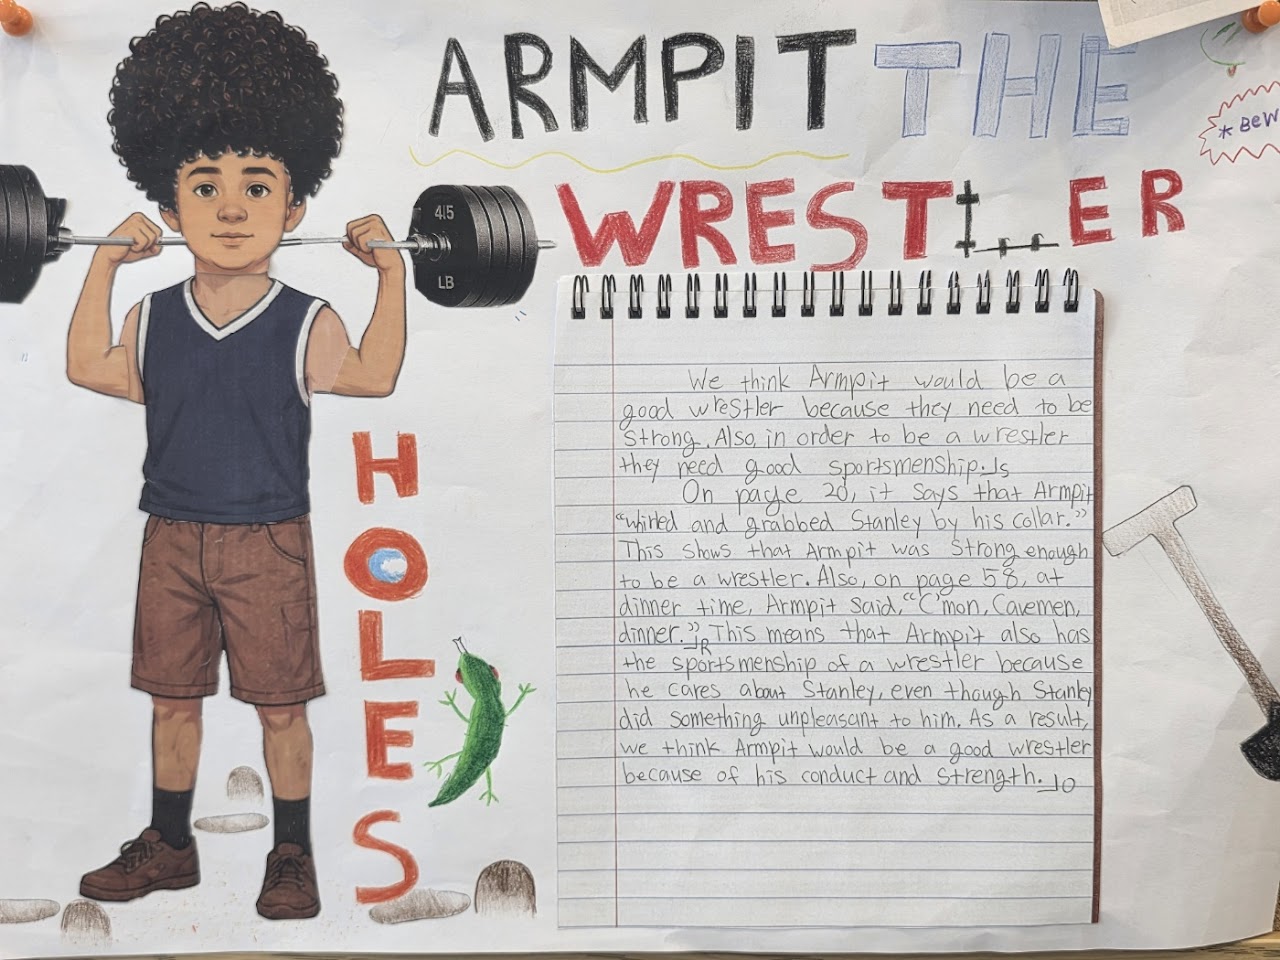 ARMPIT THE
* BEW
WRESTLER
45
LB
HOLES
We think Armpit would be a
good wrestler because they need to be
strong. Also, in order to be a wrestler
they need good sportsmenship.⌟s
On page 20, it says that Armpit
"whirled and grabbed Stanley by his collar."
This shows that Armpit was strong enough
to be a wrestler. Also, on page 58, at
dinner time, Armpit said, "C'mon, Cavemen,
dinner."⌟R This means that Armpit also has
the sportsmenship of a wrestler because
he cares about Stanley, even though Stanley
did something unpleasant to him. As a result,
we think Armpit would be a good wrestler
because of his conduct and strength.⌟O